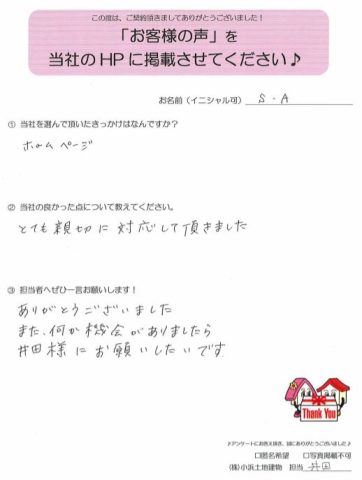 この度は、ご契約頂きましてありがとうございました!
「お客様の声」を
当社のHPに掲載させてください♪
お名前(イニシャル可) S・A
① 当社を選んで頂いたきっかけはなんですか?
ホームページ
② 当社の良かった点について教えてください。
とても親切に対応して頂きました
③ 担当者へぜひ一言お願いします!
ありがとうございました
また、何か機会がありましたら
井田様にお願いしたいです
Thank You
♪アンケートにお答え頂き、誠にありがとうございました♪
□匿名希望 □写真掲載不可
(株)小浜土地建物 担当 井田